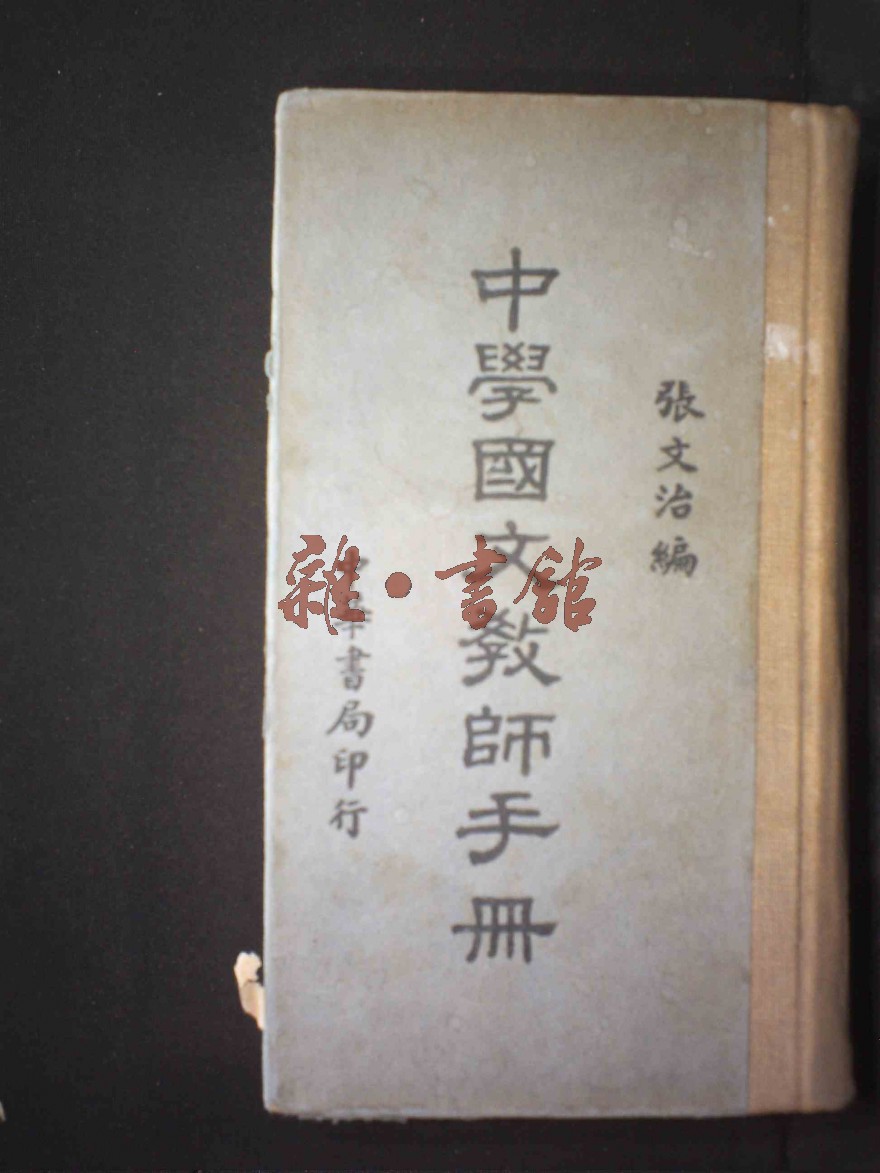 張文治編
中學國文教師手冊
中華書局印行
雜·書館